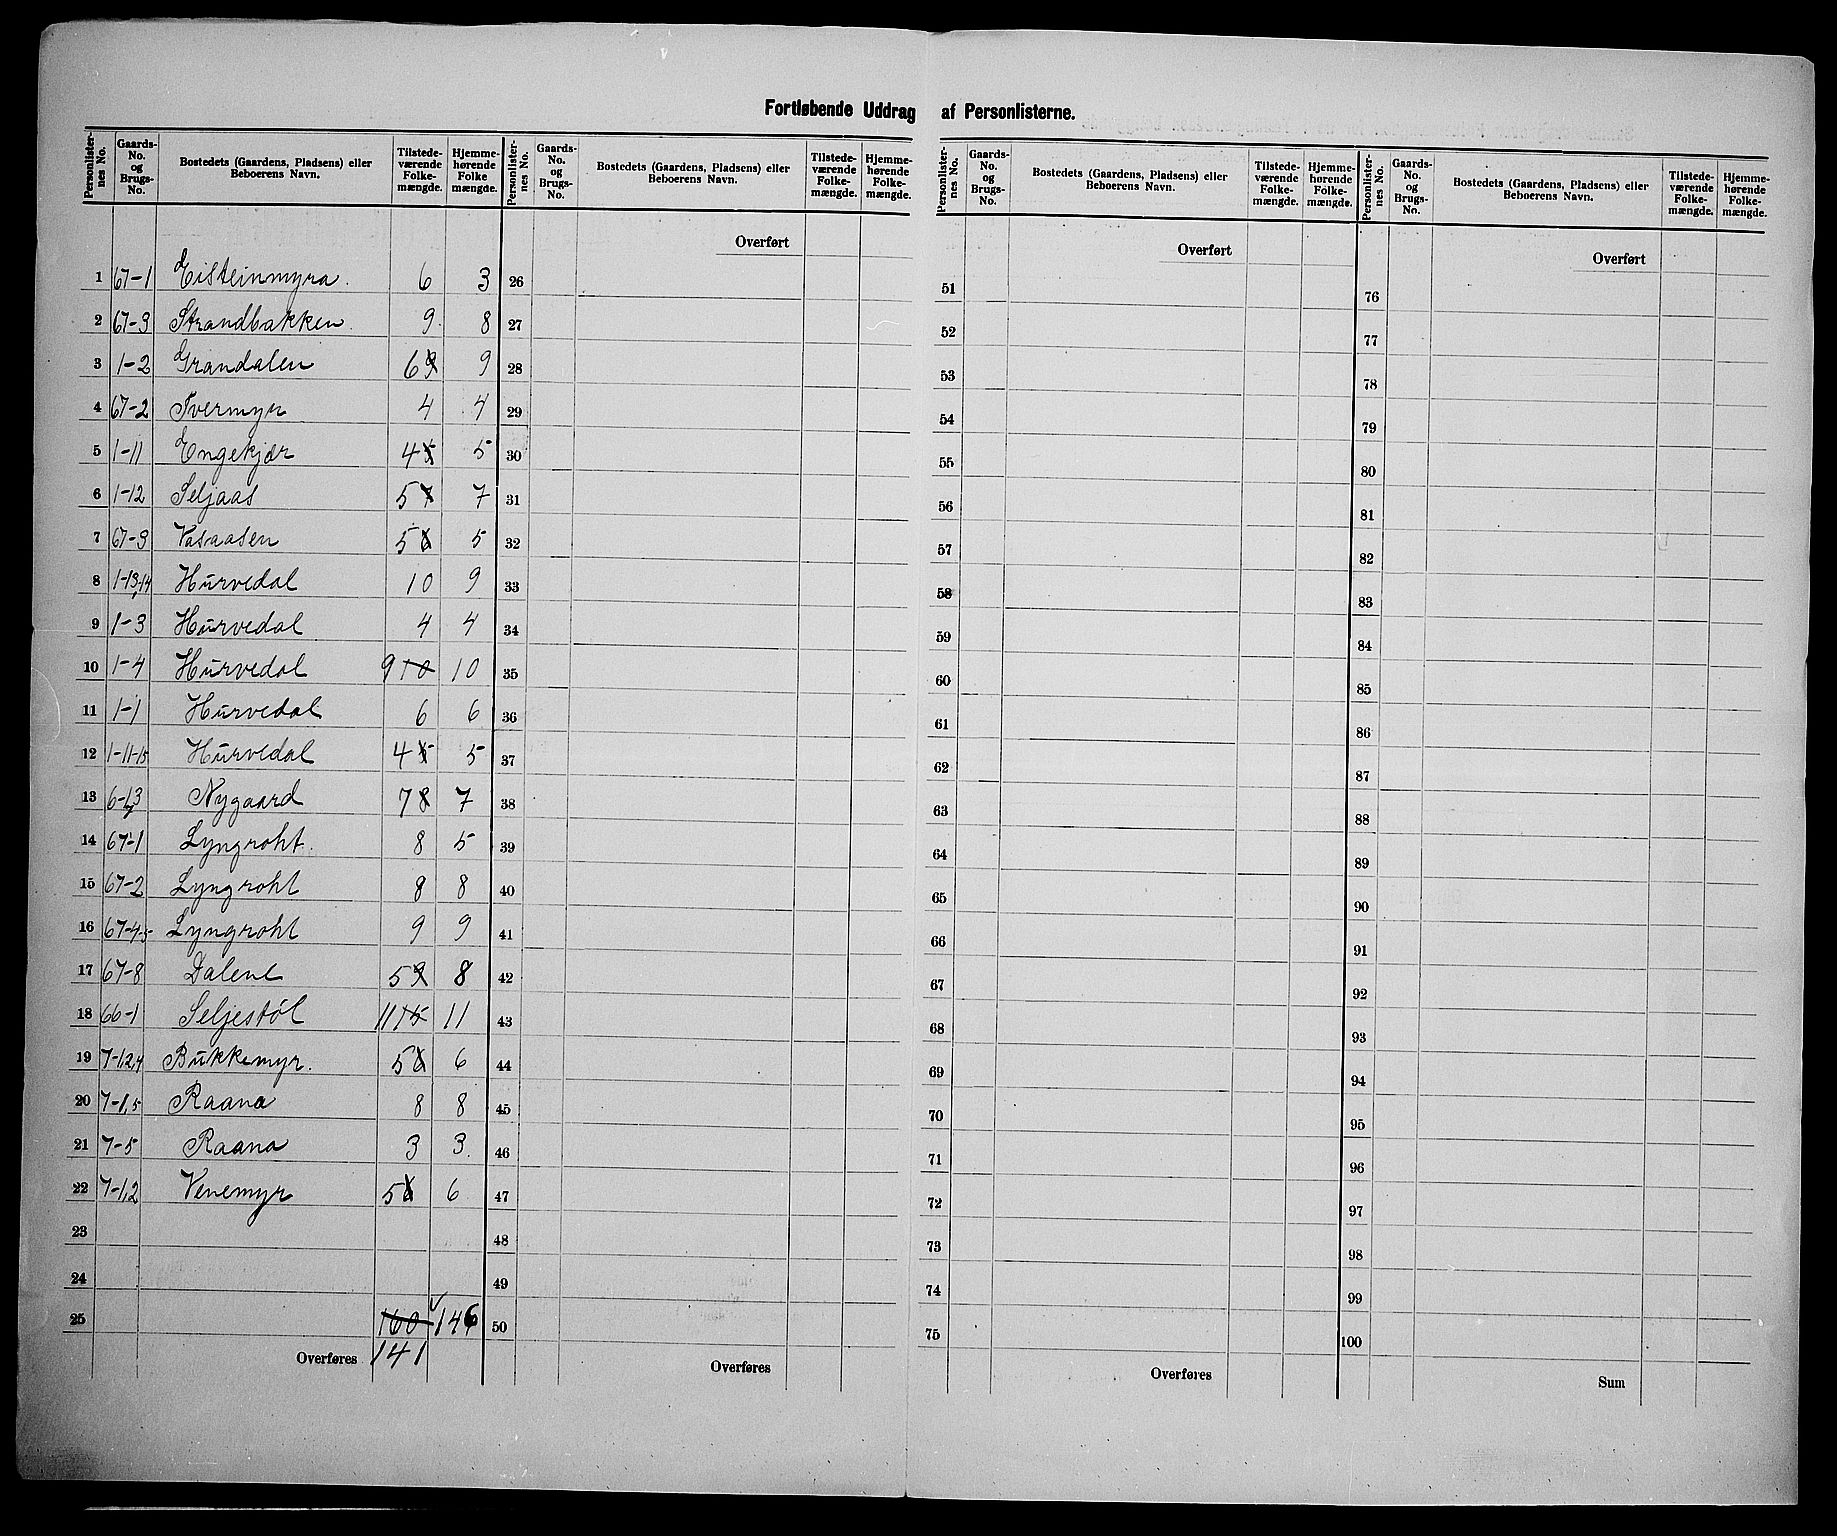 Fortløbende Uddrag af Personlisterne.
Personlisternes No. Gaards-No. og Brugs-No. Bostedets (Gaardens, Pladsens) eller Beboerens Navn. Tilstedeværende Folkemængde. Hjemmehørende Folkemængde. Personlisternes No. Gaards-No. og Brugs-No. Bostedets (Gaardens, Pladsens) eller Beboerens Navn. Tilstedeværende Folkemængde. Hjemmehørende Folkemængde. Personlisternes No. Gaards-No. og Brugs-No. Bostedets (Gaardens, Pladsens) eller Beboerens Navn. Tilstedeværende Folkemængde. Hjemmehørende Folkemængde. Personlisternes No. Gaards-No. og Brugs-No. Bostedets (Gaardens, Pladsens) eller Beboerens Navn. Tilstedeværende Folkemængde. Hjemmehørende Folkemængde.
Overført Overført Overført
1 67-1 Eisteinmyra. 6 3 26 51 76
2 67-3 Strandbakken. 9. 8 27 52 77
3 1-2 Grandalen 6 9 9 28 53 78
4 67-2 Tvermyr 4 4 29 54 79
5 1-11 Engekjær 4 5 5 30 55 80
6 1-12 Seljaas 5 7 7 31 56 81
7 67-3 Vasaasen 5 6 5 32 57 82
8 1-13,14 Hurvedal 10 9 33 58 83
9 1-3 Hurvedal 4 4 34 59 84
10 1-4 Hurvedal 9 10 10 35 60 85
11 1-1 Hurvedal 6 6 36 61 86
12 1-11-15 Hurvedal 4 5 5 37 62 87
13 Nygaard 7 8 7 38 63 88
14 67-1 Lyngroht. 8 5 39 64 89
15 67-2 Lyngroht 8 8 40 65 90
16 67-4-5 Lyngroht 9 9 41 66 91
17 67-8 Dalene 5 9 8 42 67 92
18 66-1 Seljestøl 11 15 11 43 68 93
19 7-1,2,4 Bukkemyr. 5 6 6 44 69 94
20 7-1,5 Raana 8 8 45 70 95
21 7-5 Raana 3 3. 46 71 96
22 7-1,2 Venemyr 5 6 6 47 72 97
23 48 73 98
24 49 74 99
25 160 146 50 75 100
Overføres 141 Overføres Overføres Sum